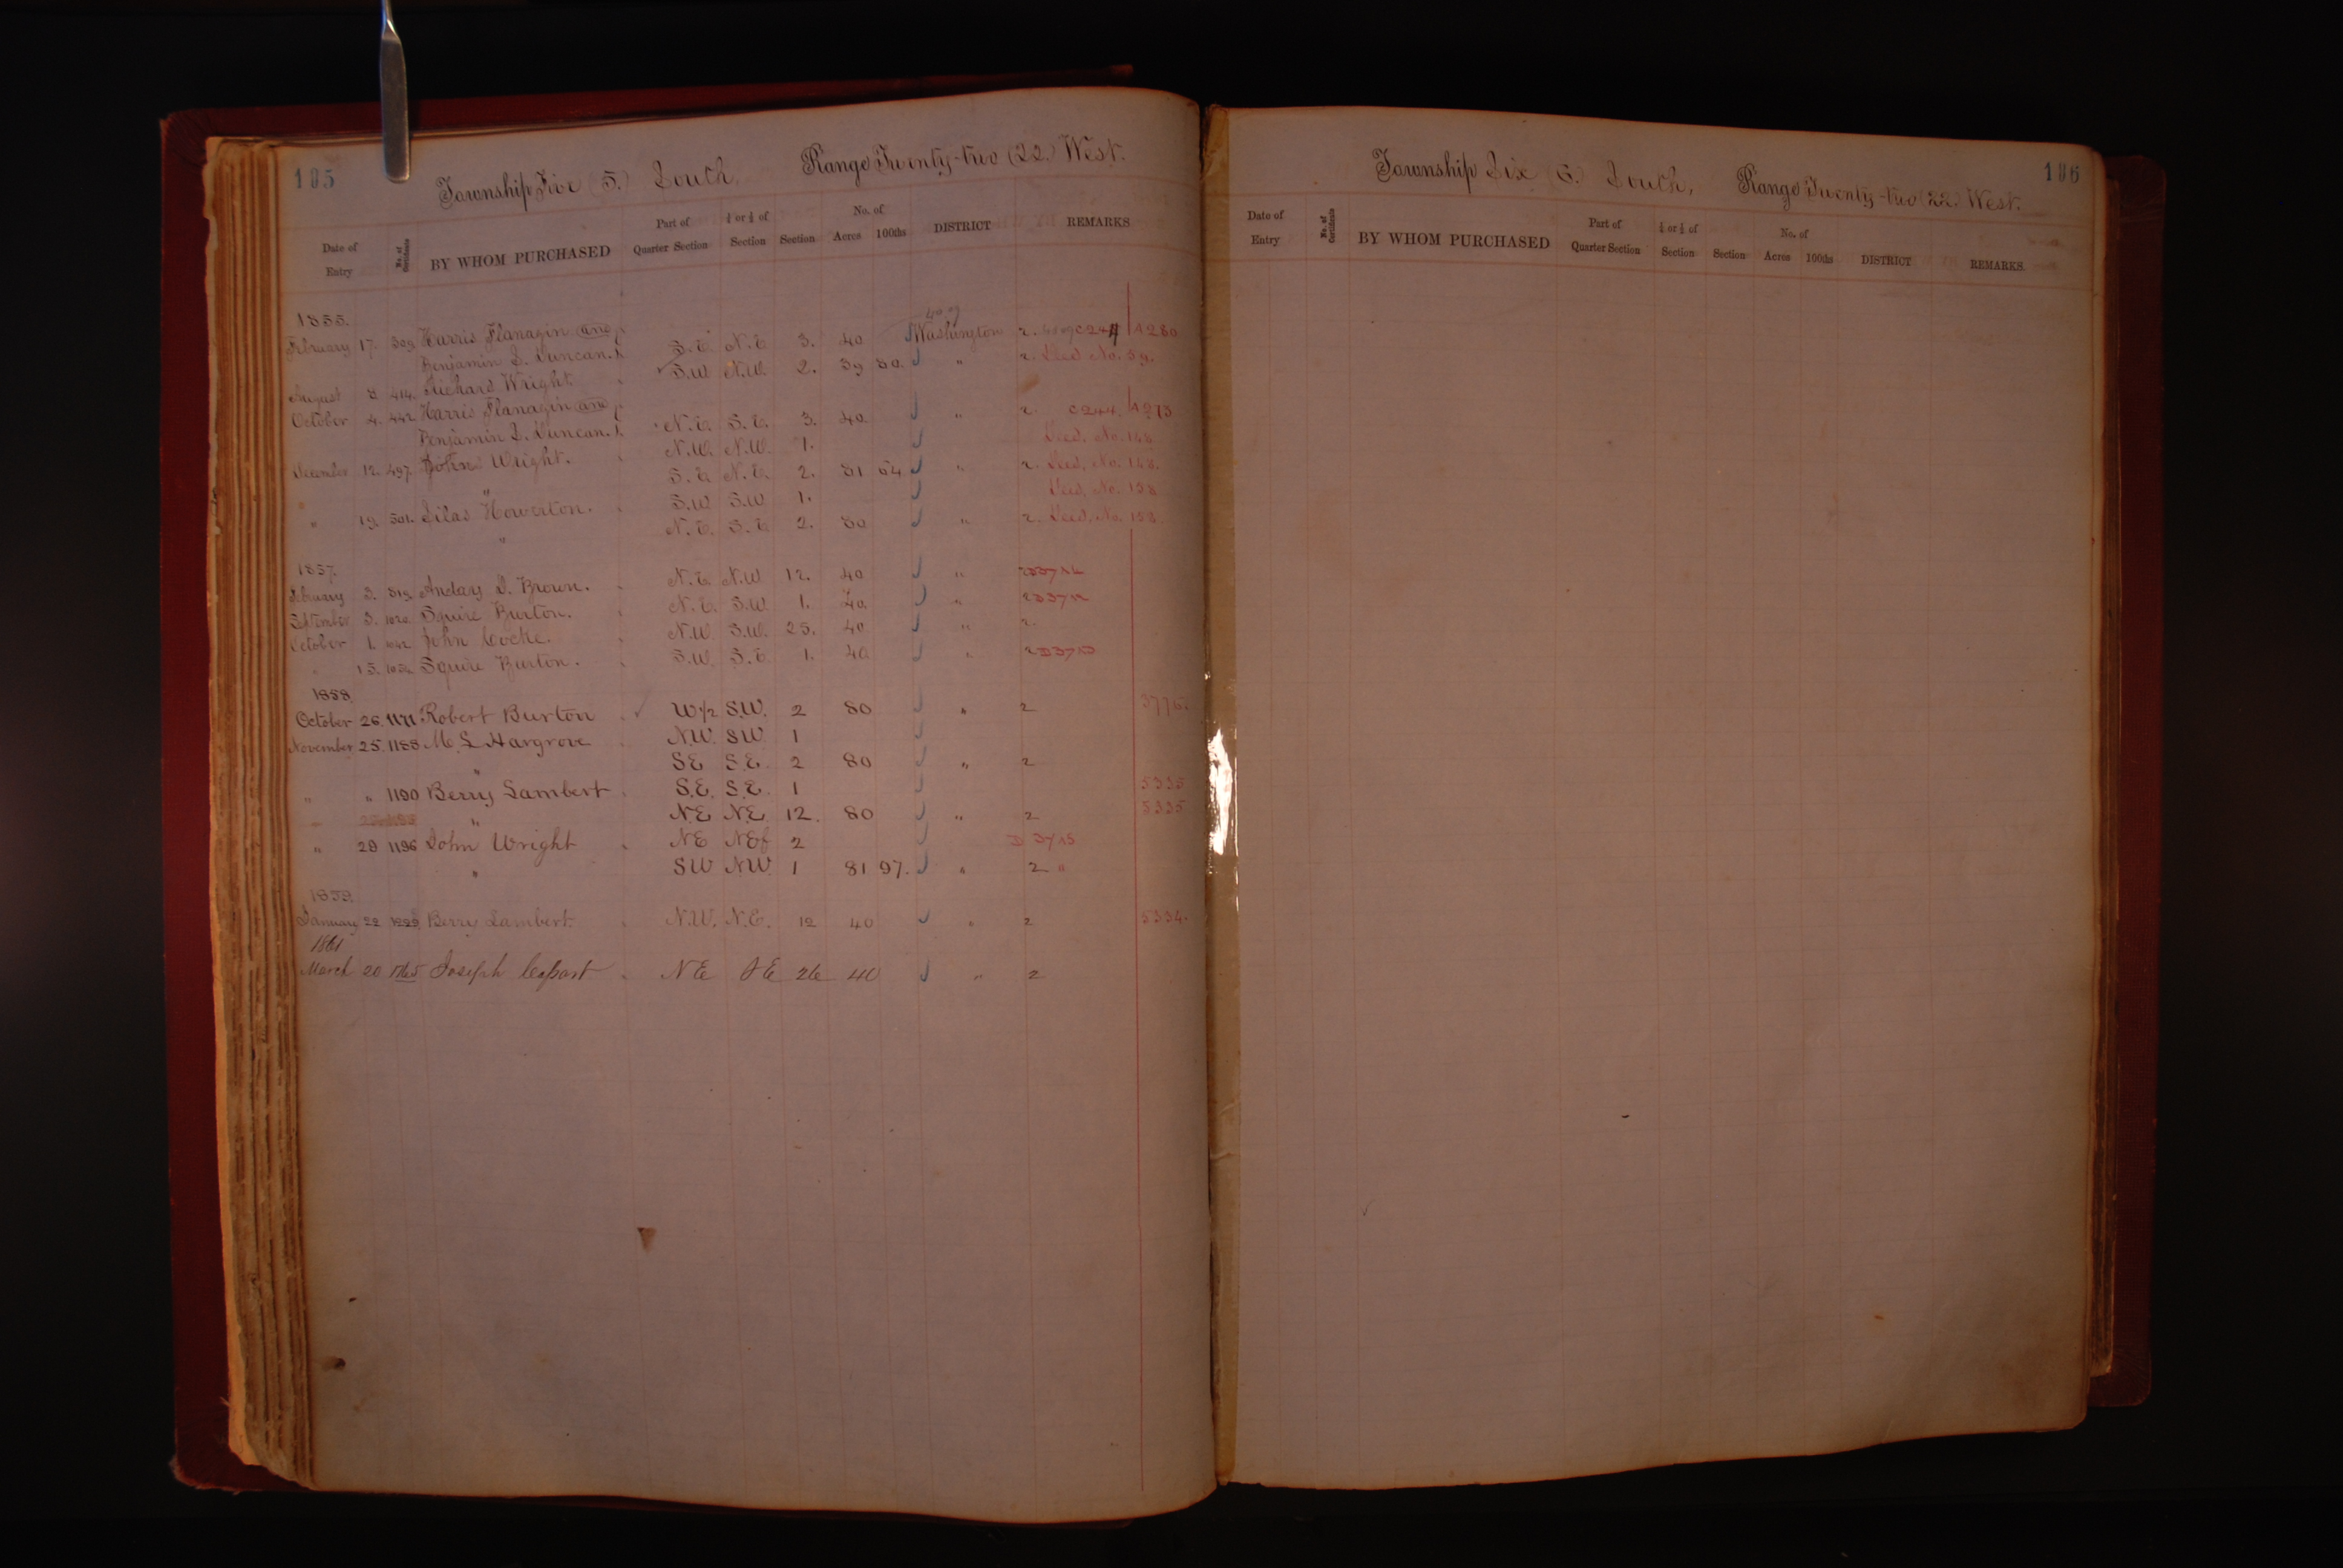 185
Township Five (5.) South, Range Twenty-two (22.) West.
Date of Entry No. of Certificate BY WHOM PURCHASED Part of Quarter Section ½ or ¼ of Section Section No. of Acres 100ths DISTRICT REMARKS
1855.
February 17. Harris Flanagin and
Benjamin S. Duncan. S.E. N.E. 3. 40 Washington 2.
August 8. 414. Richard Wright. S.W. N.W. 2. 39 80. " 2. Deed No. 59.
October 4. 442. Harris Flanagin and
Benjamin S. Duncan. N.E. S.E. 3. 40 " 2. C244. A273
December 12. 497. John Wright. N.W. N.W. 1. Deed, No. 148.
" S.E. N.E. 2. 81 54 " 2. Deed, No. 148.
" 19. 501. Silas Howerton. S.W. S.W. 1. Deed, No. 158
" N.E. S.E. 2. 80 " 2. Deed, No. 158
1857.
February 3. 819. Brown. N.E. N.W. 12. 40 " 2
September 3. 1020. Squire Burton. N.E. S.W. 1. 40 " 2
October 1. 1042. John Cocke. N.W. S.W. 25. 40 " 2.
" 15. Squire Burton. S.W. S.E. 1. 40 " 2
1858.
October 26. 1171 Robert Burton W½ S.W. 2 80 " 2 3776.
November 25. 1188 M. L. Hargrove N.W. SW. 1
" SE S.E. 2 80 " 2
" " 1190 Berry Lambert S.E. S.E. 1 5335
" NE N.E. 12. 80 " 2 5335
" 29 1196 John Wright NE NEf 2 D 3715
" SW NW. 1 81 97. " 2 "
1859.
January 22 1229 Berry Lambert. N.W. N.E. 12 40 " 2 5334.
1861
March 20 Joseph NE SE 26 40 " 2
186
Township Six (6.) South, Range Twenty-two (22.) West.
Date of Entry No. of Certificate BY WHOM PURCHASED Part of Quarter Section ½ or ¼ of Section Section No. of Acres 100ths DISTRICT REMARKS.